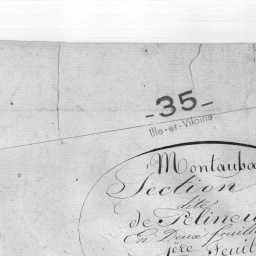 -35-
Ille-et-Vilaine
Montauba
Section
dite
de Pelineu
En Deux feuill
1ère Feuil